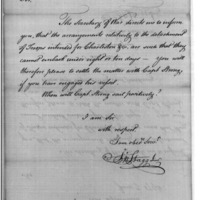 Sir
The Secretary of War directs me to inform
you, that the arrangements relatively to the detachment
of Troops intended for Charleston &c. are such that they
cannot embark under eight or ten days — You will
therefore please to settle the matter with Capt Strong,
if you have engaged his vessel.
When will Capt Strong sail positively?
I am Sir
with respect
Your obed. Serv.
Stagg